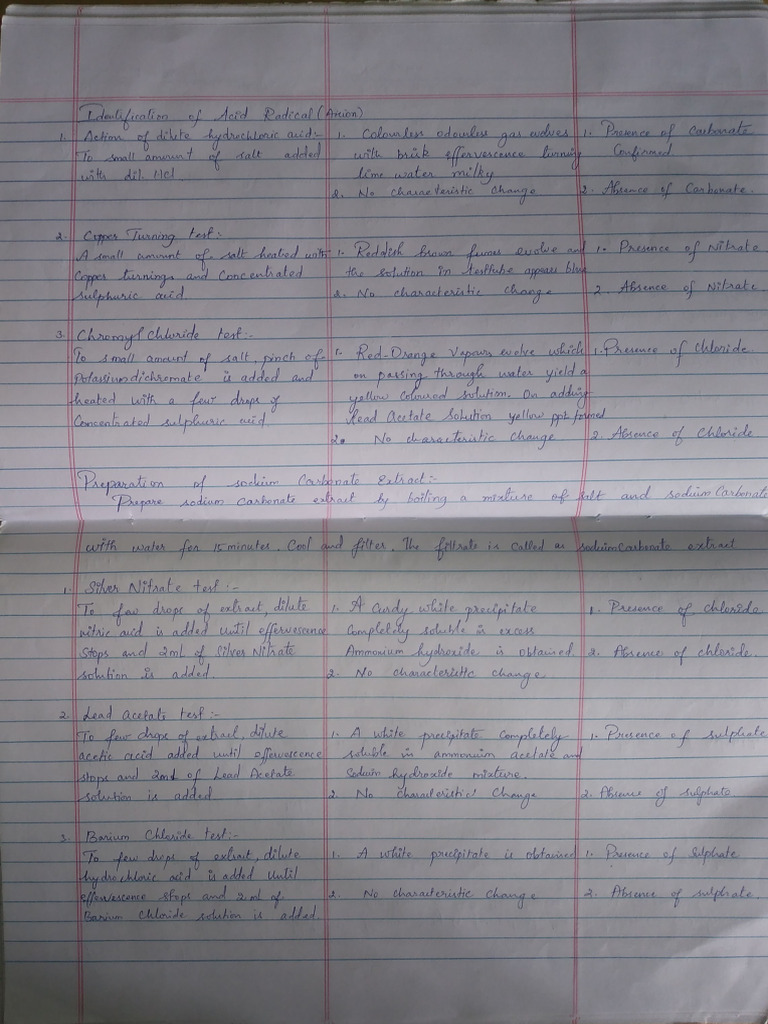 Identification of Acid Radical (Anion)
1. Action of dilute hydrochloric acid:-
To small amount of salt added
with dil. HCl.
1. Colourless odourless gas evolves
with brisk effervescence turning
lime water milky
2. No characteristic Change
1. Presence of Carbonate
Confirmed
2. Absence of Carbonate.
2. Copper Turning test:-
A small amount of salt heated with
Copper turnings and Concentrated
sulphuric acid.
1. Reddish brown fumes evolve and
the solution in testtube appears blue
2. No characteristic Change
1. Presence of Nitrate
2. Absence of Nitrate
3. Chromyl Chloride test:-
To small amount of salt, pinch of
Potassium dichromate is added and
heated with a few drops of
Concentrated sulphuric acid.
1. Red-Orange Vapours evolve which
on passing through water yield a
yellow coloured solution. On adding
lead Acetate Solution yellow ppt formed
2. No characteristic Change
1. Presence of chloride
2. Absence of Chloride
Preparation of sodium Carbonate Extract:-
Prepare sodium carbonate extract by boiling a mixture of salt and sodium Carbonate
with water for 15 minutes. Cool and filter. The filtrate is called as sodium carbonate extract
1. Silver Nitrate test:-
To few drops of extract, dilute
nitric acid is added until effervescence
stops and 2mL of Silver Nitrate
solution is added.
1. A Curdy white precipitate
Completely soluble in excess
Ammonium hydroxide is obtained
2. No characteristic change.
1. Presence of chloride
2. Absence of chloride.
2. Lead acetate test:-
To few drops of extract, dilute
acetic acid added until effervescence
stops and 2mL of Lead Acetate
solution is added.
1. A white precipitate completely
soluble in ammonium acetate and
Sodium hydroxide mixture.
2. No characteristic Change
1. Presence of sulphate
2. Absence of sulphate
3. Barium Chloride test:-
To few drops of extract, dilute
hydrochloric acid is added until
effervescence stops and 2mL of
Barium Chloride solution is added.
1. A white precipitate is obtained
2. No characteristic Change
1. Presence of Sulphate
2. Absence of sulphate.